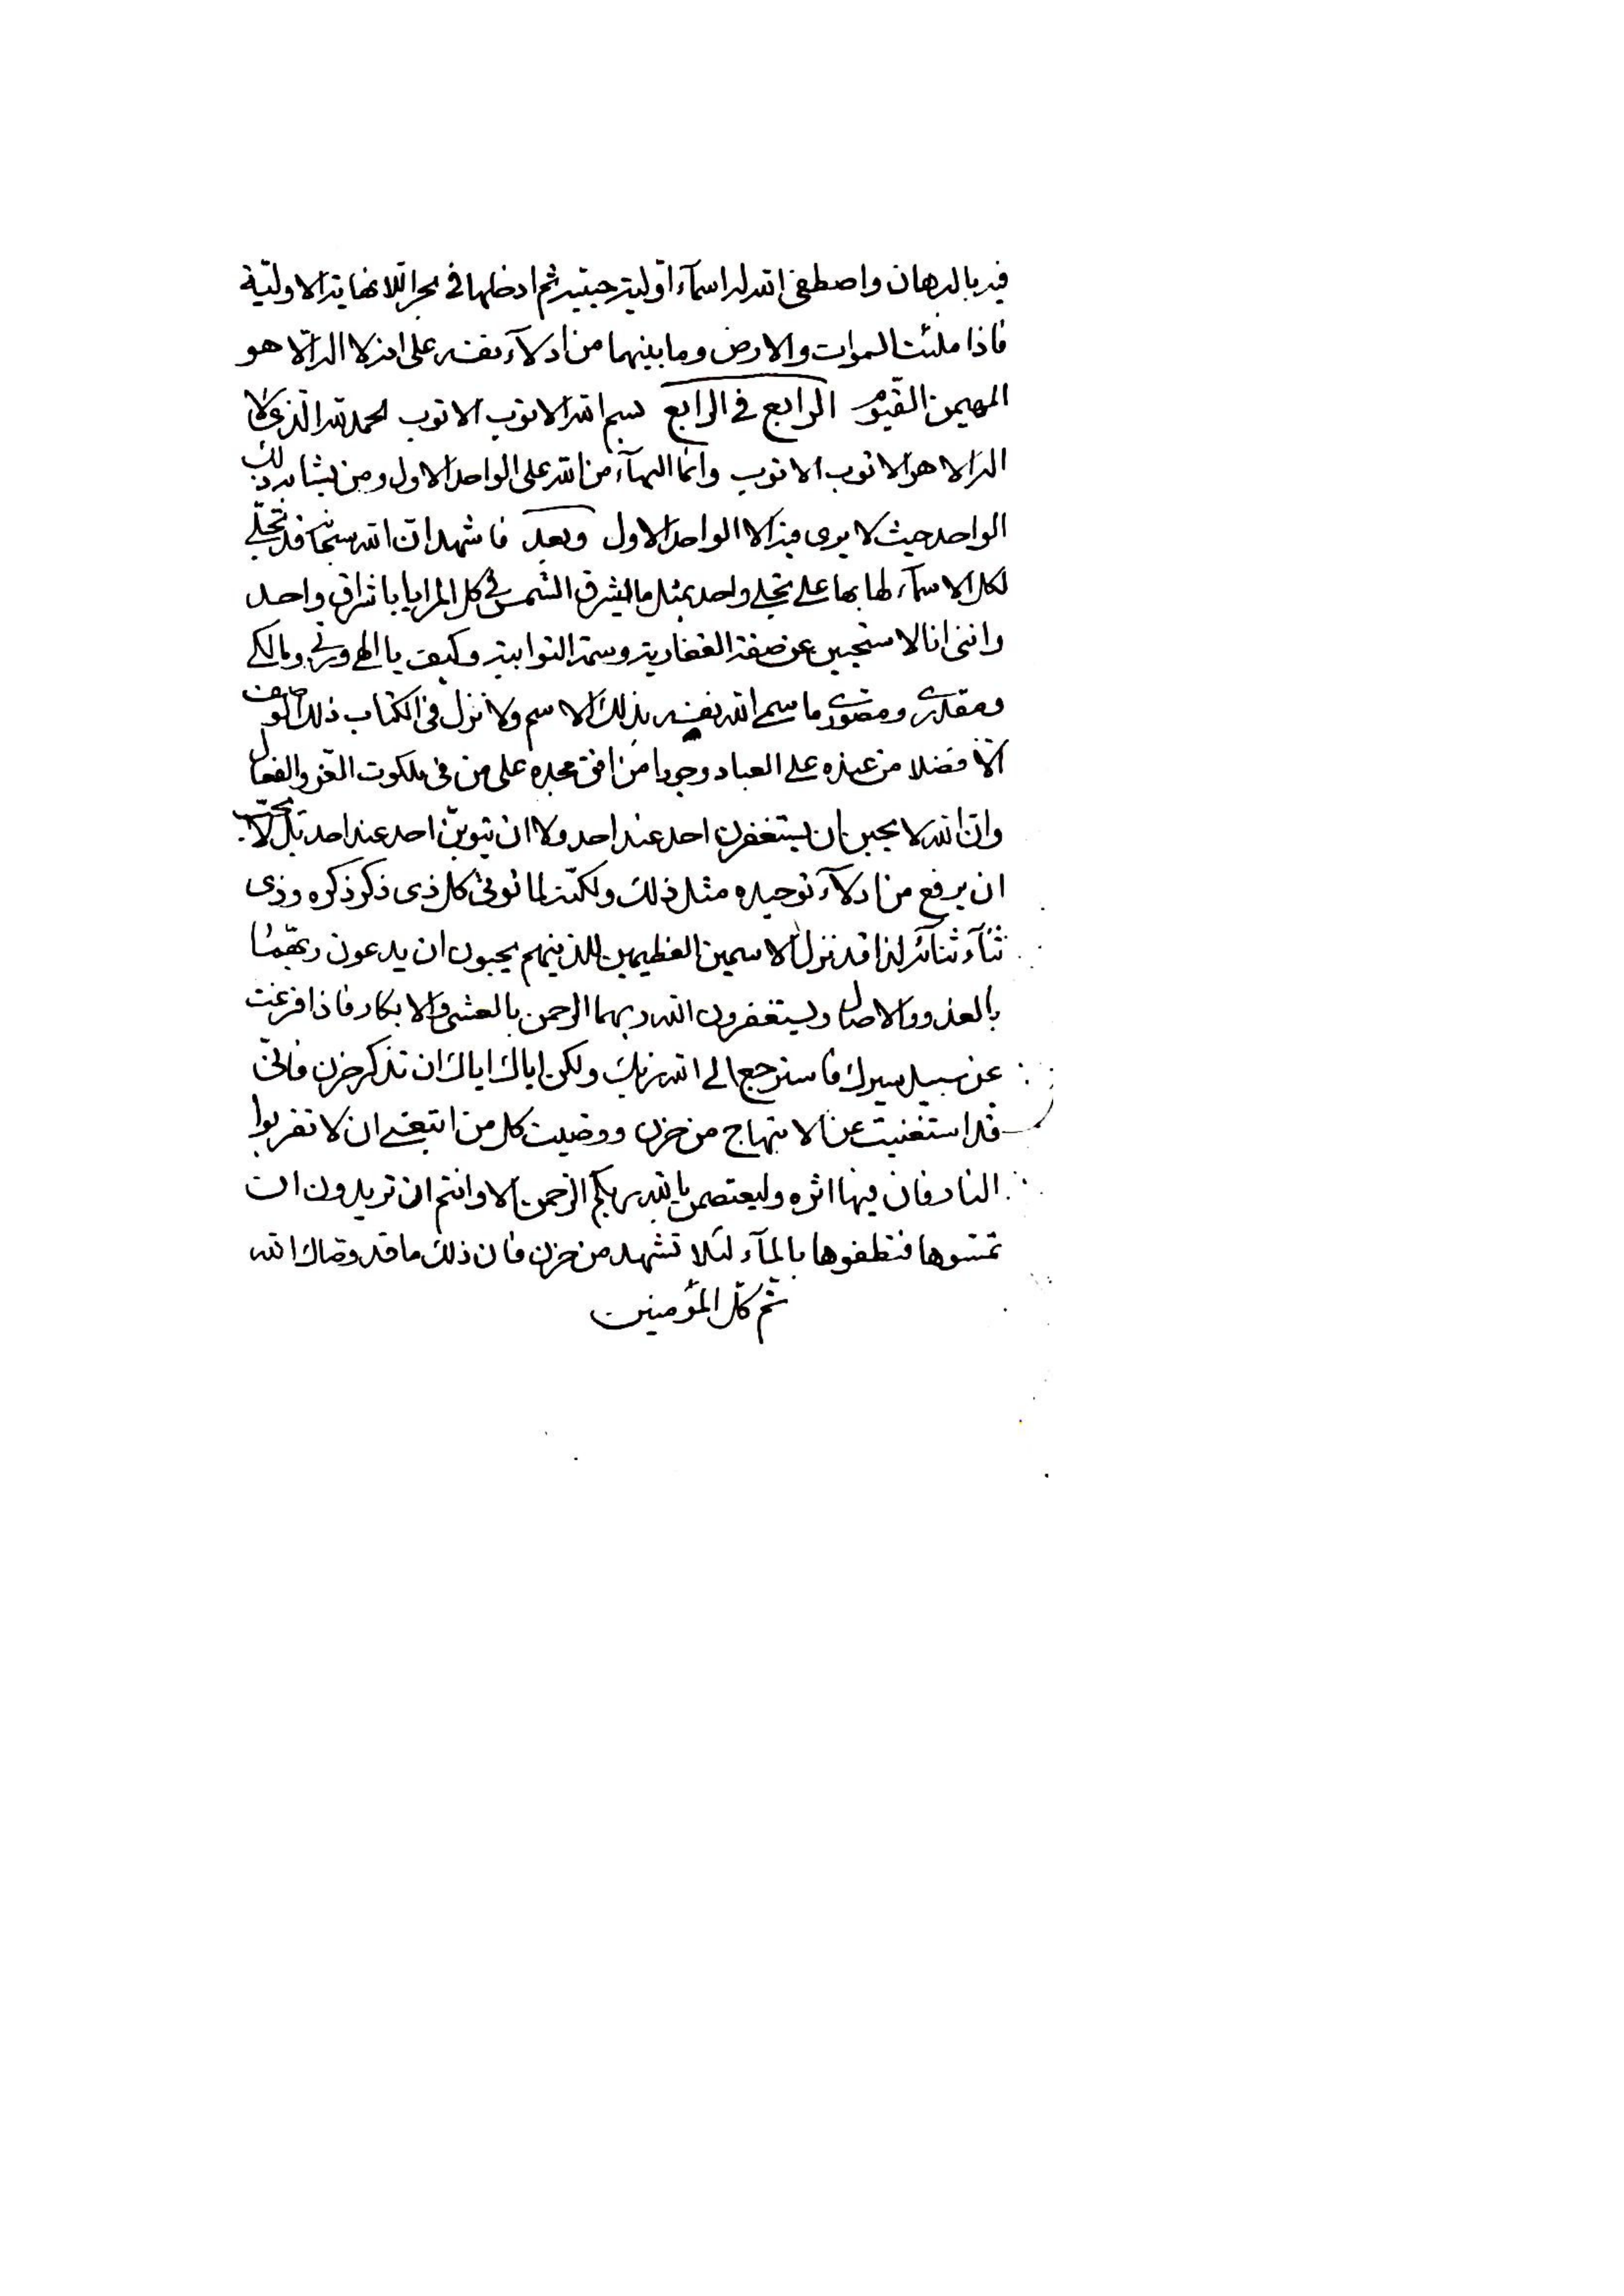 فيه بالبرهان واصطفى الله له اسمآء اولية حبيبه ثم ادخلها فى بحر اللانهاية الاولية
فاذا ملئت السموات والارض وما بينهما من ادلآء نفسه على انه لا اله الا هو
المهيمن القيوم الرابع فى الرابع بسم الله الاتوب الاتوب الحمد لله الذى لا
اله الا هو الاتوب الاتوب وانما البهآء من الله على الواحد الاول ومن يشابه ذلك
الواحد حيث لا يرى فيه الا الواحد الاول وبعد فاشهد ان الله سبحانه قد تجلى
لكل الاسمآء لها بها على تجلى واحد بمثل ما ليشرق الشمس فى كل المرايا باشراق واحد
واننى انا لاستحيين عن صفة الغفارية وسمة التوابية وكيف يا الهى وربى ومالكى
ومقدرى ومصورى ما سمى الله نفسه بذلك الاسم ولا نزل فى الكتاب ذلك الوصف
الا فضلا من عنده على العباد وجودا من افق مجده على من فى ملكوت العز والفعال
وان الله لا يحبن ان يستغفرن احد عند احد ولا ان يتوبن احد عند احد بل لا يحب
ان يرفع من ادلآء توحيده مثل ذلك ولكنه لما توفى كل ذى ذكر ذكره وذى
ثنآء ثنائه لذا قد نزل الاسمين العظيمين للذينهم يحبون ان يدعون ربهم بهما
بالغدو والاصال ويستغفرون الله ربهما الرحمن بالعشى والابكار فاذا فرغت
عن سبيل سيرك فاسترجع الى الله ربك ولكن اياك اياك ان تذكر حزن فانى
قد استغنيت عن الابتهاج من حزن ووصيت كل من اتبعنى ان لا تقربوا
النار فان فيها اثره وليعتصمن بالله ربكم الرحمن الا وانتم ان تريدون ان
تمسوها فنظفوها بالمآء لئلا تشهد من حزن فان ذلك ما قد وصاك الله
ثم كل المؤمنين